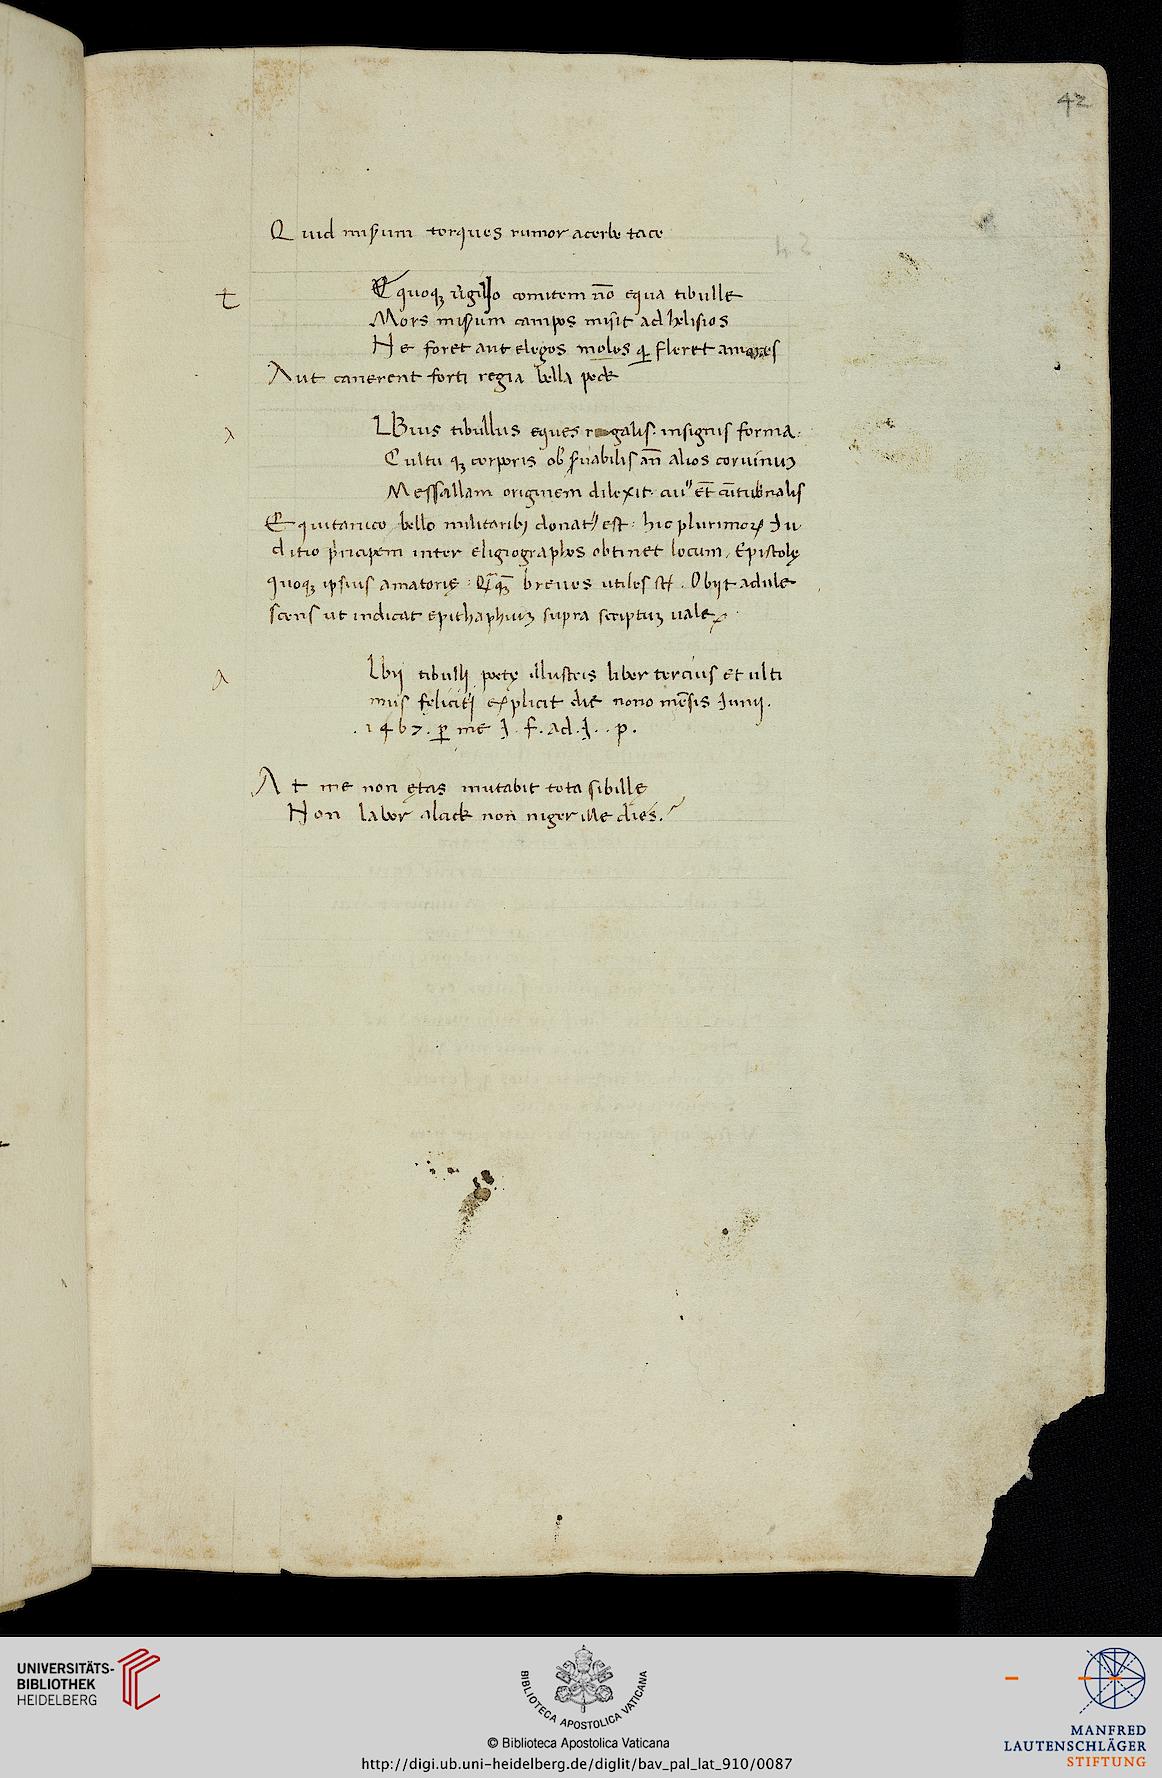 42
Quid miserum torques rumor acerbe tace
t
E quoqȝ v̄gilio comitem nō equa tibulle
Mors miserum campos misit ad helisios
Ne foret aut elegos moles qi fleret amores
Aut caneret forti regia bella pede
λ
LBius tibullus eques regalis: insignis forma:
Cultu qȝ corporis obseruabilis añ alios coruinuȝ
Messallam originem dilexit. cui' et̄ cōtubernalis
Equitanico bello militaribȝ donat' est: hic plurimoꝝ Iu
ditio pͥncipem inter eligiographos obtinet locum. Epistolę
quoqȝ ipsius amatorię. Qͣqȝ breues utiles st̄. Obijt adule
scens ut indicat epithaphiuȝ supra scriptuȝ uale
λ
Lbij tibullj poetę illustris liber tercius et ulti
mus feliciter explicit die nono mēsis Iunij.
.1467. ꝑ me I. f. ad. I. . p.
At me non ętas mutabit tota sibille
Non labor alcide non niger ille dies.
UNIVERSITÄTS-
BIBLIOTHEK
HEIDELBERG
BIBLIOTECA APOSTOLICA VATICANA
© Biblioteca Apostolica Vaticana
http://digi.ub.uni-heidelberg.de/diglit/bav_pal_lat_910/0087
MANFRED
LAUTENSCHLÄGER
STIFTUNG